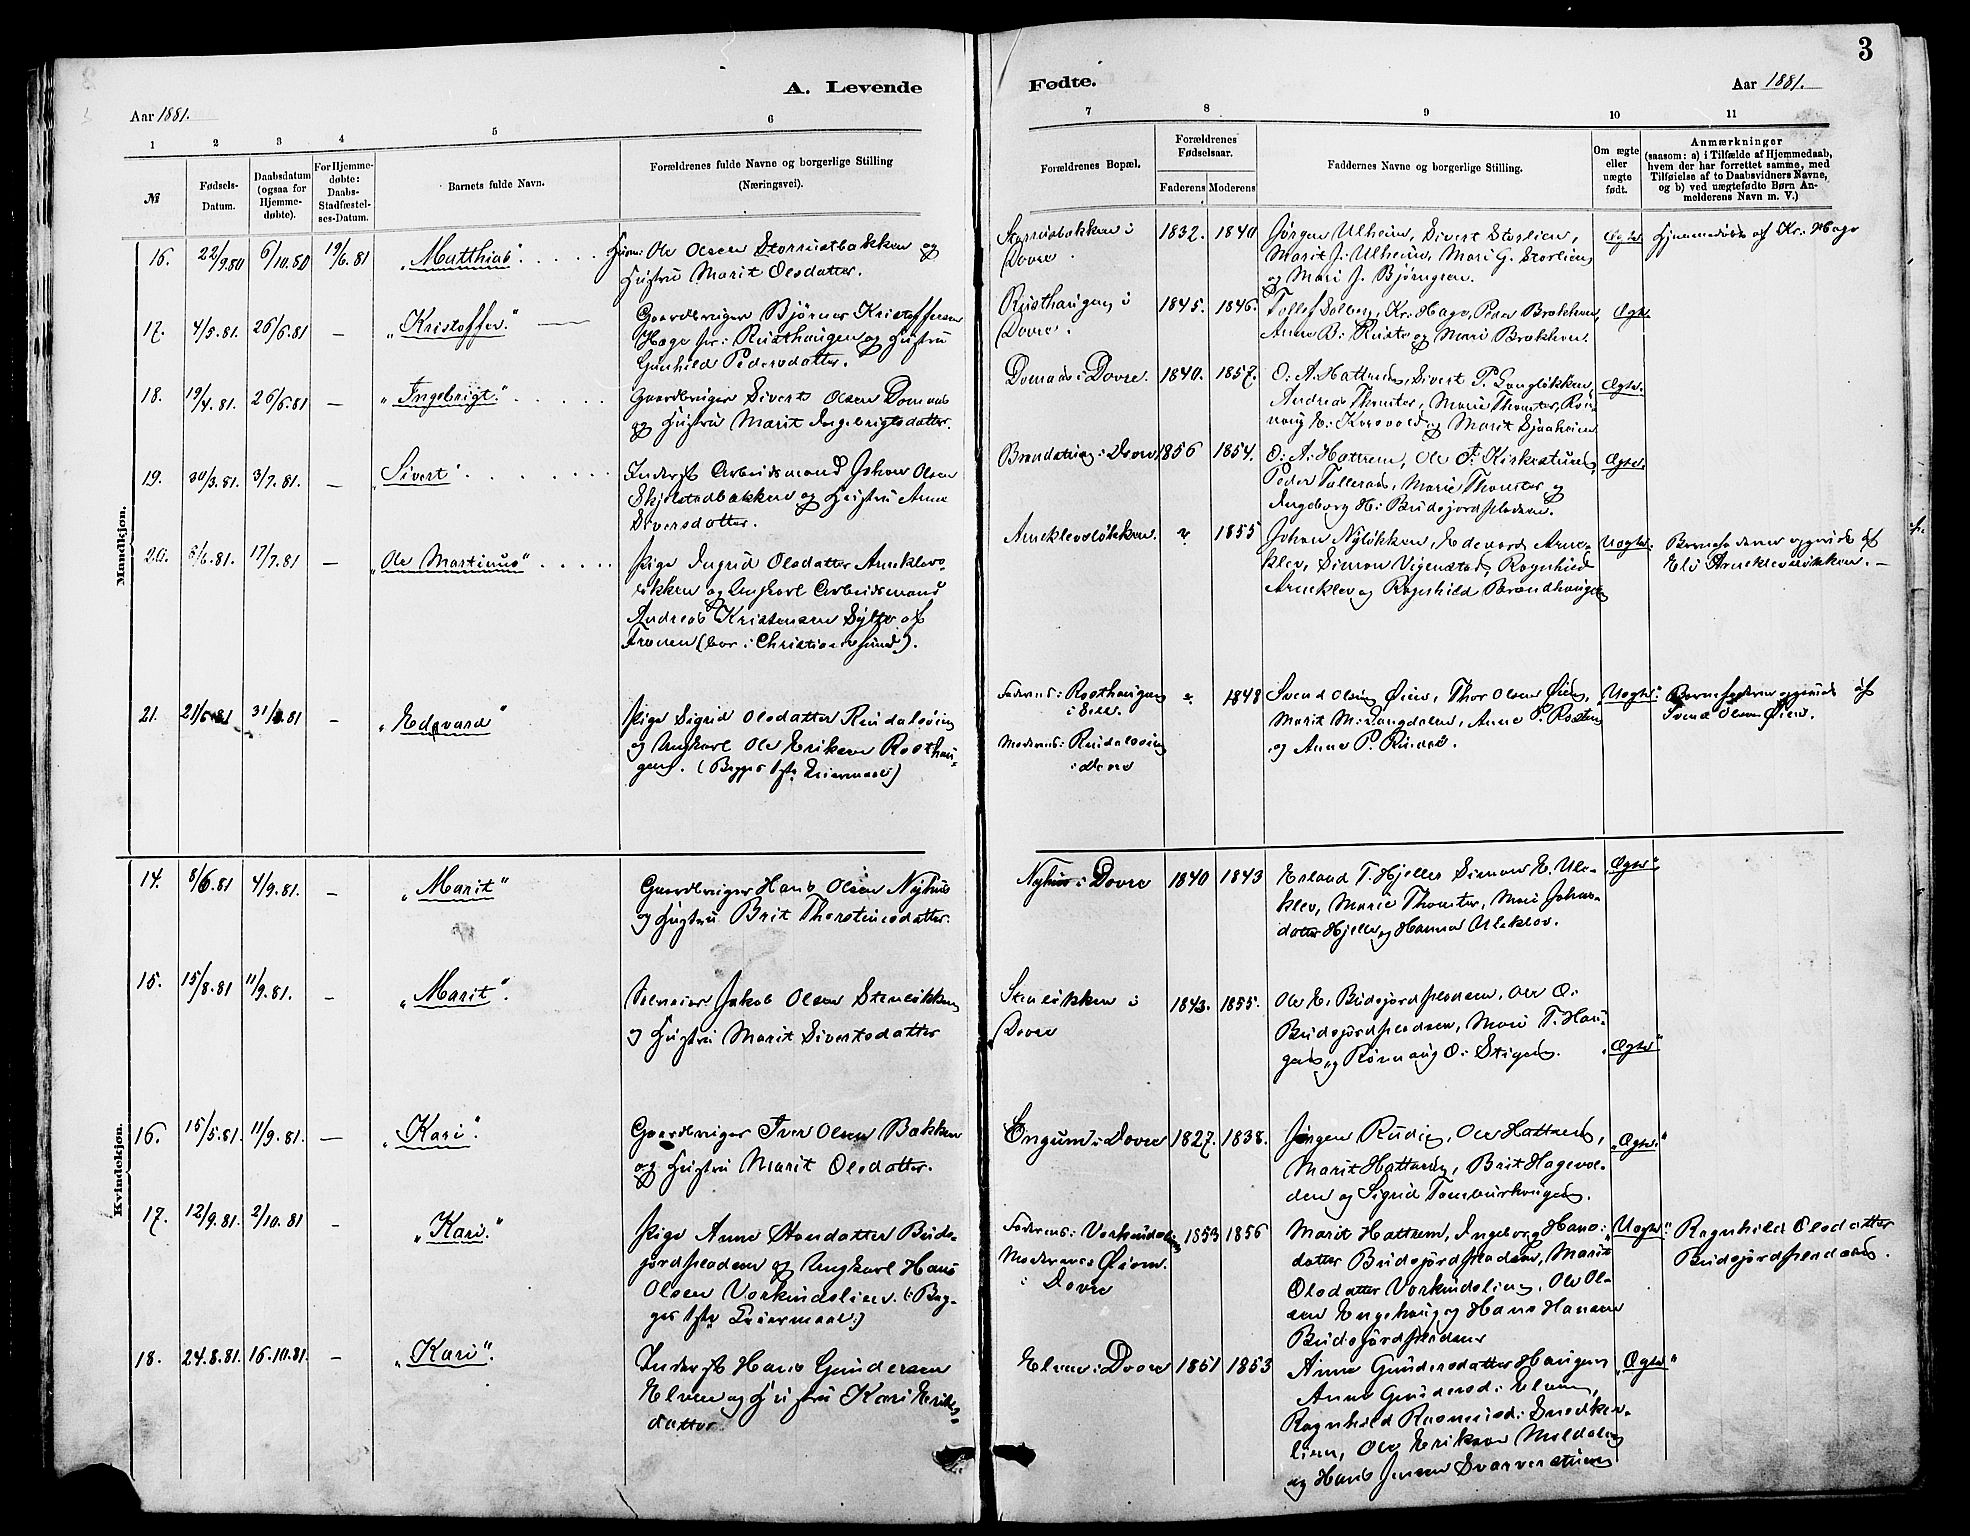 3
A. Levende
Fødte.
Aar 1881.
Aar 1881.
1
2
3
4
5
6
7
8
9
10
11
№
Fødsels-
Datum.
Daabsdatum
(ogsaa for
Hjemme-
døbte).
For Hjemme-
døbte:
Daabs-
Stadfæstel-
ses-Datum.
Barnets fulde Navn.
Forældrenes fulde Navne og borgerlige Stilling
(Næringsvei).
Forældrenes Bopæl.
Forældrenes
Fødselsaar.
Faderens
Moderens
Faddernes Navne og borgerlige Stilling.
Om ægte
eller
uægte
født.
Anmærkninger
(saasom: a) i Tilfælde af Hjemmedaab,
hvem der har forrettet samme, med
Tilføielse af to Daabsvidners Navne,
og b) ved uægtefødte Børn An-
melderens Navn m. V.)
Mandkjøn.
16.
22/9.80
6/10.80
19/6.81
"Matthias".
Ole Olsen Storrustbakken og
Hustru Marit Olsdatter.
i
Dovre
1832.
1840
Jørgen Ulheim, Sivert Storlien,
Marit J. Ulheim, Mari G. Storlien
og Mari J. Bjørngren.
Ægte
Hjemmedøbt af Kr. Hage
17.
4/5.81.
26/6.81
—
"Kristoffer."
Gaardbruger Bjørner Kristoffersen
Hage fr: Rusthaugen og Hustru
Gunhild Pedersdatter.
Rusthaugen i
Dovre.
1845.
1846.
Tollef Solberg, Kr. Hage, Peder Brækken,
Anne B. Ruste og Mari Brækken.
Ægte
18.
19/4.81.
26/6.81
—
"Ingebrigt."
Gaardbruger Sivert Olsen Domaas
og Hustru Marit Ingebrigtsdatter.
Domaas i Dovre.
1840.
1857.
O. A. Hattrem, Sivert P.
Andreas Thomter, Marie Thomter, Røn-
naug E. Korsvold og Marit Sjaaheim
Ægte.
19.
30/3.81.
3/7.81.
—
"Sivert".
Inderst Arbeidsmand Johan Olsen
Skjelstadbakken og Hustru Anne
Siversdatter.
i Dovre
1856
1854.
O. A. Hattrem, Ole F.
Peder Talleraas, Marie Thomter og
Ingeborg H. Budsjordpladsen.
Ægte.
20.
6/6.81
17/7.81
—
"Ole Martinus"
Pige Ingrid Olsdatter Arneklevs-
løkken og Ungkarl Arbeidsmand
Andreas Kristensen Sylte af
Fronen (bor i Christiansund).
Arneklevsløkken.
?
1855
Johan Nyløkken, Edevard Arne-
klev, Simon Vigenstad, Ragnhild
Arneklev og Ragnhild Brændhaugen
Uægte.
Barnefaderen opgivet af
Eli Arneklevsløkken. —
21.
21/5.81
31/7.81
—
"Edevard"
Pige Sigrid Olsdatter Rudalsøien
og Ungkarl Ole Eriksen Rosthau-
gen. (Begges 1ste Leiermaal)
Faderens: Rosthaugen
i Sell.
Moderens: Rudalsøien
i Dovre
1848
Svend Olsen Øien, Thor Olsen Øien,
Marit M. Langdalen, Anne P. Rosten
og Anne P. Rudi.
Uægte.
Barnefaderen opgivet af
Svend Olsen Øien.
Kvindekjøn.
14.
8/6.81
4/9.81.
—
"Marit"
Gaardbruger Hans Olsen Nyhus
og Hustru Brit Thorstensdatter.
Nyhus i Dovre
1840
1843
Erland T. Hjelle, Simon E. Ule-
klev, Marie Thomter, Mari Johans-
datter Hjelle og Hanna Uleklev.
"Ægte"
15.
15/8.81
11/9.81.
—
"Marit".
Selveier Jakob Olsen Stenløkken
og Hustru Marit Sivertsdatter
Stenløkken i
Dovre
1843.
1855.
Ole E. Budsjordpladsen, Ole O.
Budsjordpladsen, Mari T. Hau-
gen og Rønnaug O. Stigen.
"Ægte"
16.
15/5.81.
11/9.81.
—
"Kari".
Gaardbruger Iver Olsen Bakken
og Hustru Marit Olsdatter.
Engum i Dovre
1827.
1838.
Jørgen Rudi, Ole Hattrem,
Marit Hattrem, Brit Hagevol-
den og Sigrid Tomburhaugen.
"Ægte."
17.
12/9.81.
2/10.81
—
"Kari".
Pige Anne Hansdatter Buds-
jordpladsen og Ungkarl Hans
Olsen Vorkindslien. (: Beg-
ges 1ste Leiermaal:)
Faderens: Vorkindslien
Moderens Øien
i Dovre
1853
1856
Marit Hattrem, Ingeborg Hans-
datter Budsjordpladsen, Marit
Olsdatter Vorkindslien, Ole Ol-
sen Engehaug og Hans Hansen
Budsjordpladsen
"Uægte"
Ragnhild Olsdatter
Budsjordpladsen.
18.
24.8.81.
16.10.81.
—
"Kari".
Inderst Hans Gundersen
Elven og Hustru Kari Eriks-
datter
Elven i Dovre
1851
1853
Anne Gundersdatter Haugen,
Anne Gundersd: Elven,
Ragnhild Rasmusd: Snedker-
lien, Ole Eriksen
og Hans Jensen
"Ægte"